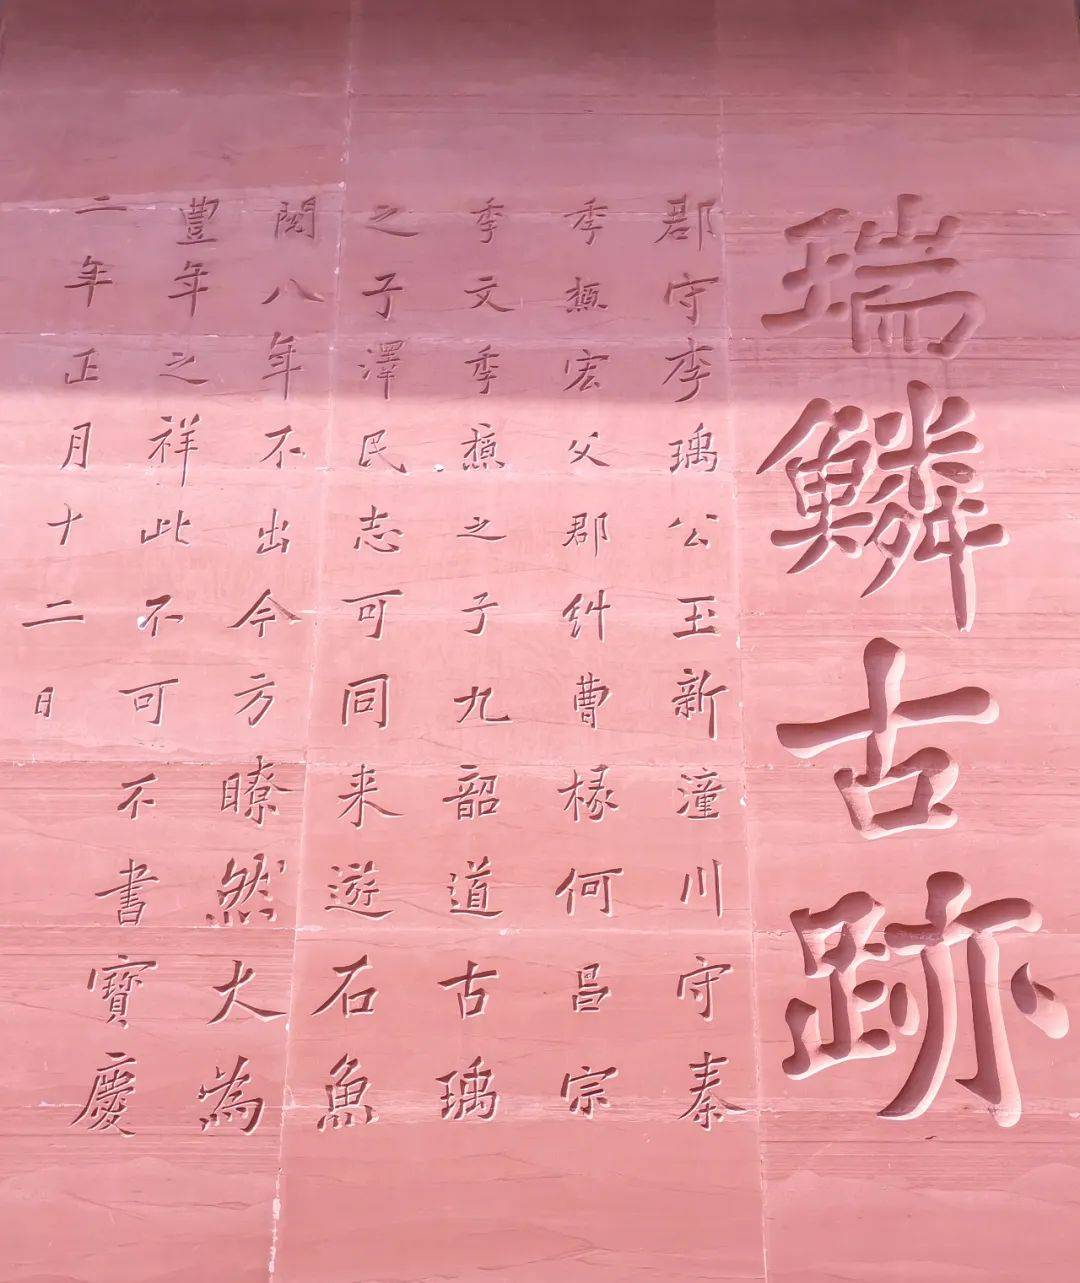 瑞鱗古跡
郡守李瑀公玉新潼川守秦
季槱宏父郡糾曹椽何昌宗
季文季槱之子九韶道古瑀
之子澤民志可同来遊石魚
閱八年不出今方瞭然大為
豐年之祥此不可不書寶慶
二年正月十二日